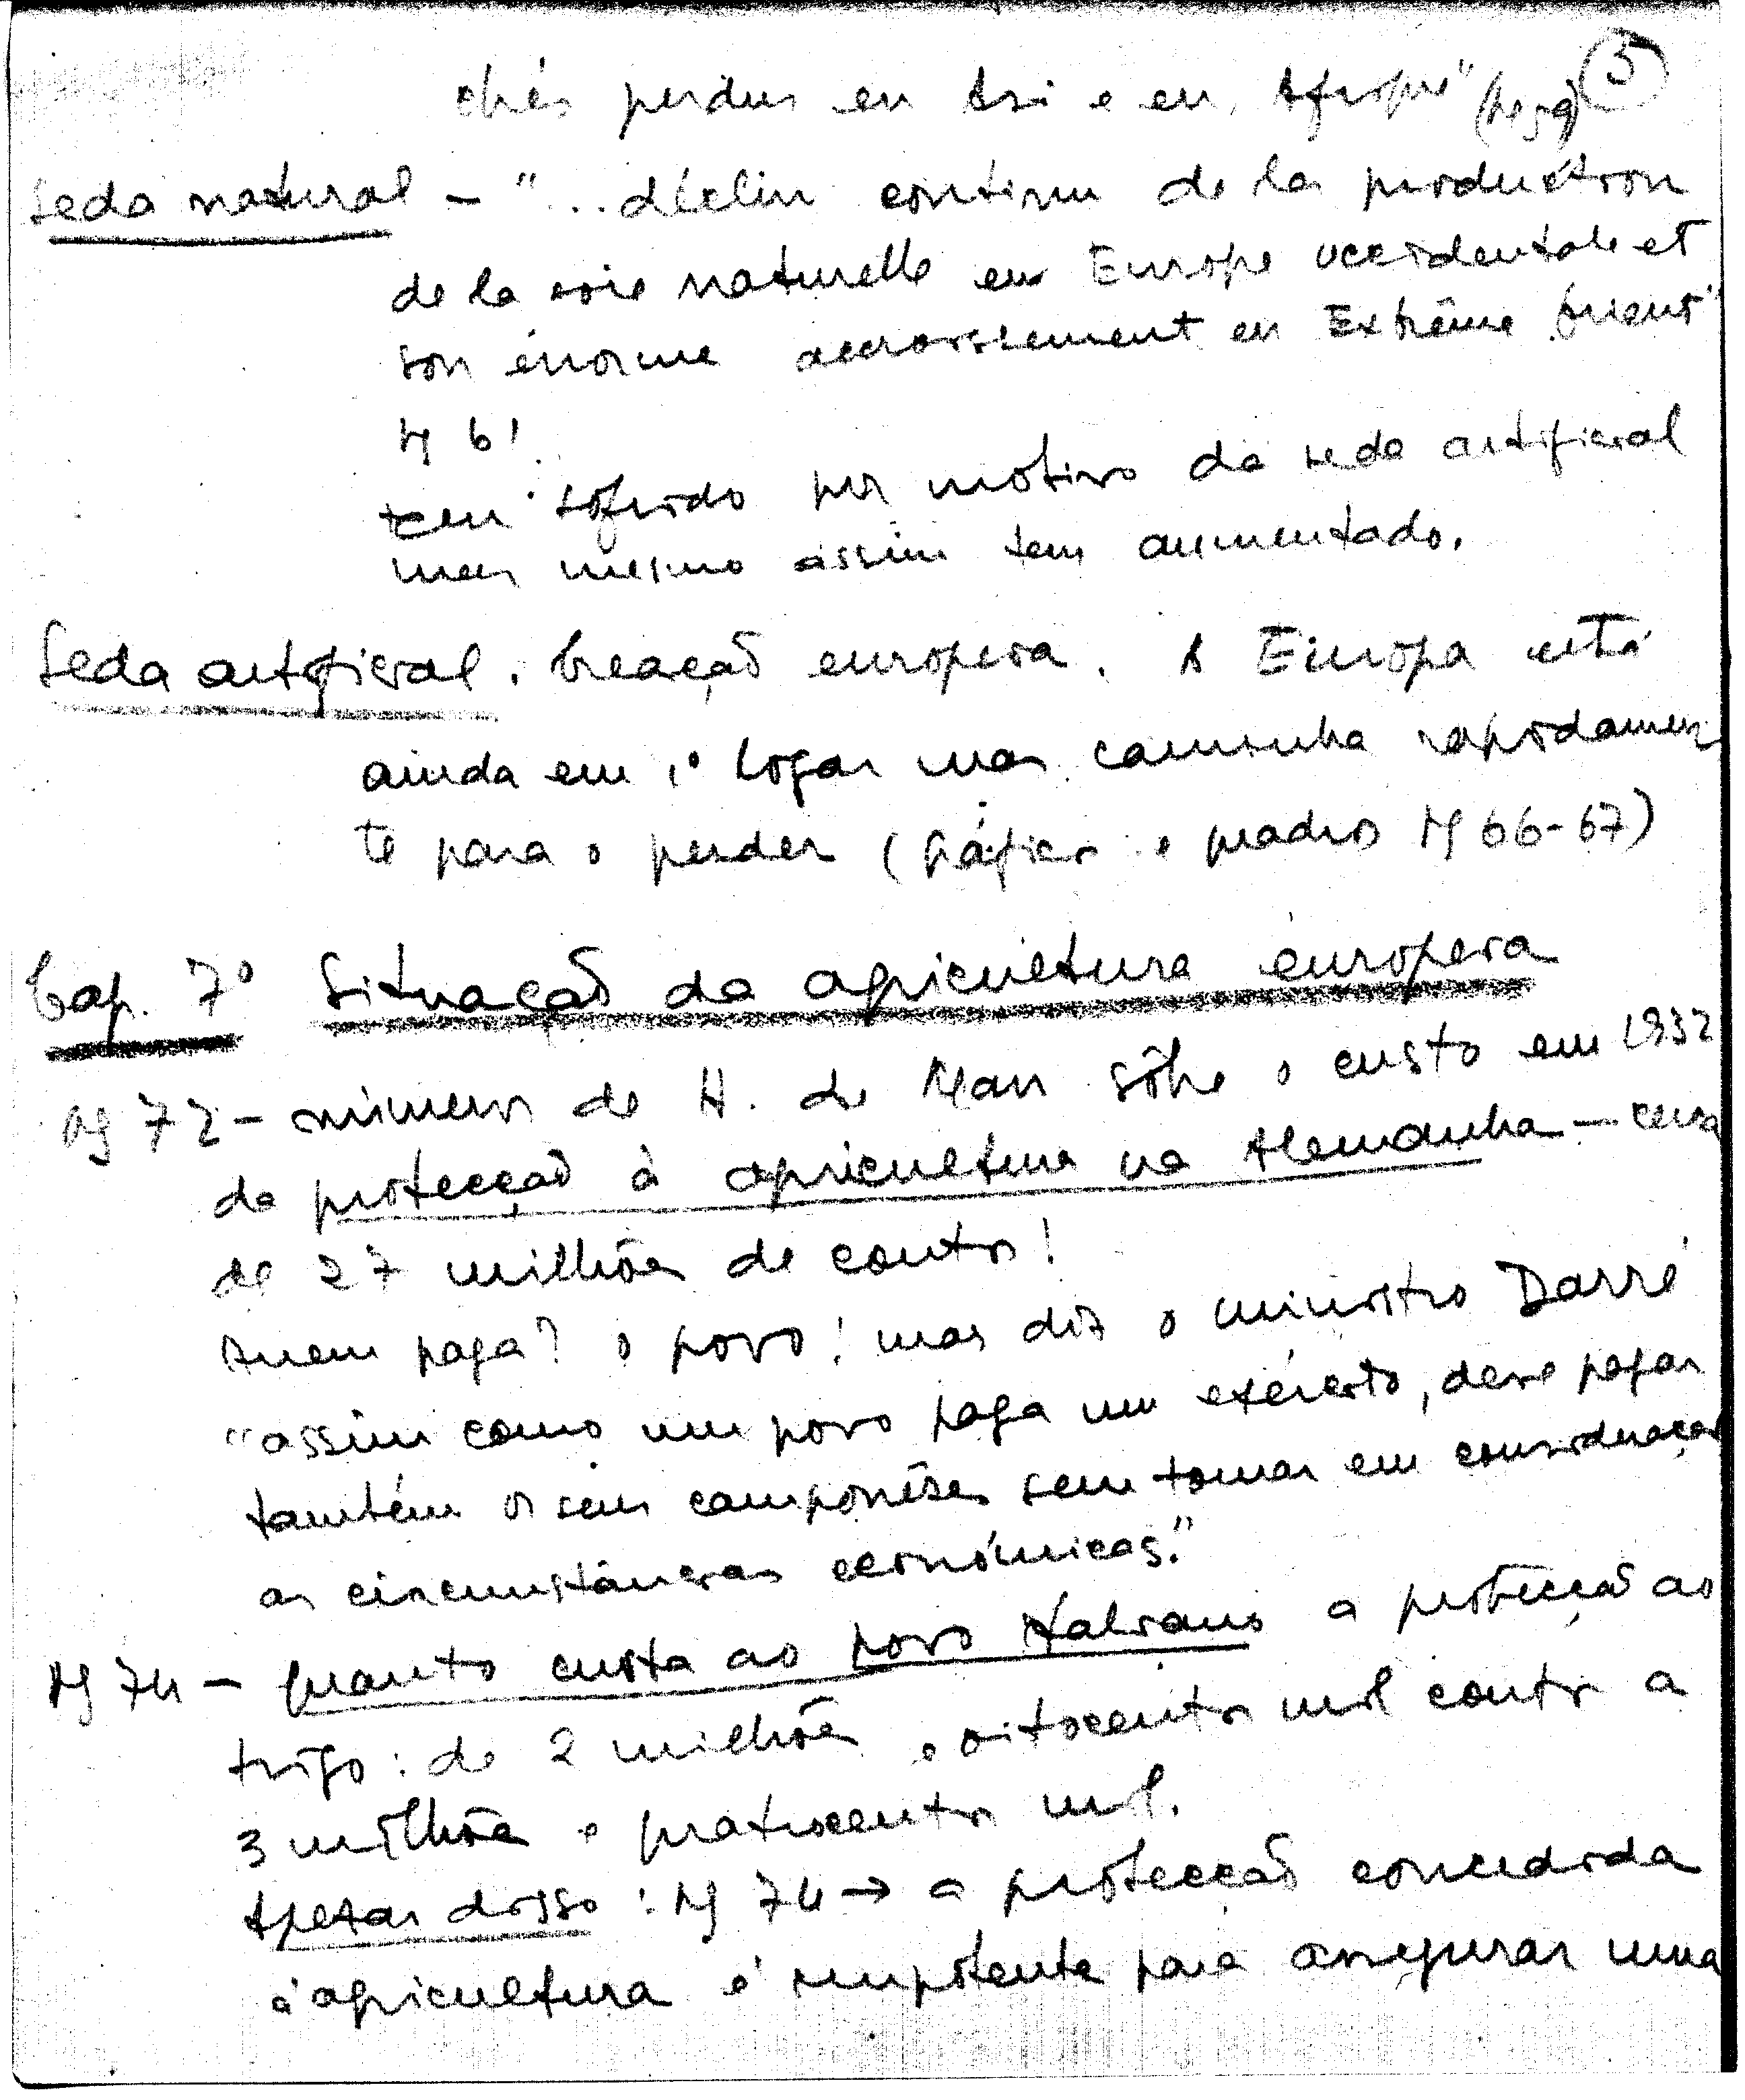 5
chés perdus en Asie e en Afrique" (pg 59)
Seda natural - "... déclin continu de la production
de la soie naturelle en Europe occidentale et
son énorme accroissement en Extrême Orient"
pg 61.
tem sofrido por motivo da seda artificial
mas mesmo assim tem aumentado.
Seda artificial. Creação europeia. A Europa está
ainda em 1º logar mas caminha rapidamen
te para o perder (gráfico e quadros pg 66-67)
Cap. 7º Situação da agricultura europeia
pg 72 - números de H. de Man sôbre o custo em 1932
da protecção à agricultura na Alemanha - cerca
de 27 milhões de contos!
Quem paga? o povo! mas diz o ministro Darré
"assim como um povo paga um exército, deve pagar
também os seus camponêses sem tomar em consideração
as circunstâncias económicas."
pg 74 - quanto custa ao povo italiano a protecção ao
trigo: de 2 milhões e oitocentos mil contos a
3 milhões e quatrocentos mil.
Apesar disso: pg 74 → a protecção concedida
à agricultura é impotente para assegurar uma